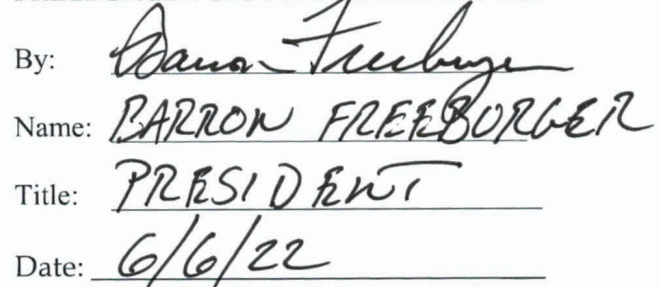 By: Barron Freeburger
Name: BARRON FREEBURGER
Title: PRESIDENT
Date: 6/6/22